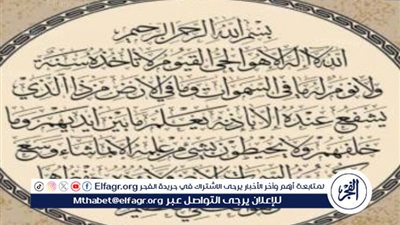 بسم الله الرحمن الرحيم
الله لا اله الا هو الحي القيوم لا تاخذه سنة
ولا نوم له ما في السموات وما في الارض من ذا الذي
يشفع عنده الا باذنه يعلم ما بين ايديهم وما
خلفهم ولا يحيطون بشيء من علمه الا بما شاء وسع
لمتابعة أهم وآخر الأخبار يرجى الاشتراك في جريدة الفجر Elfagr.org
للإعلان يرجى التواصل عبر Mthabet@elfagr.org
الفجر